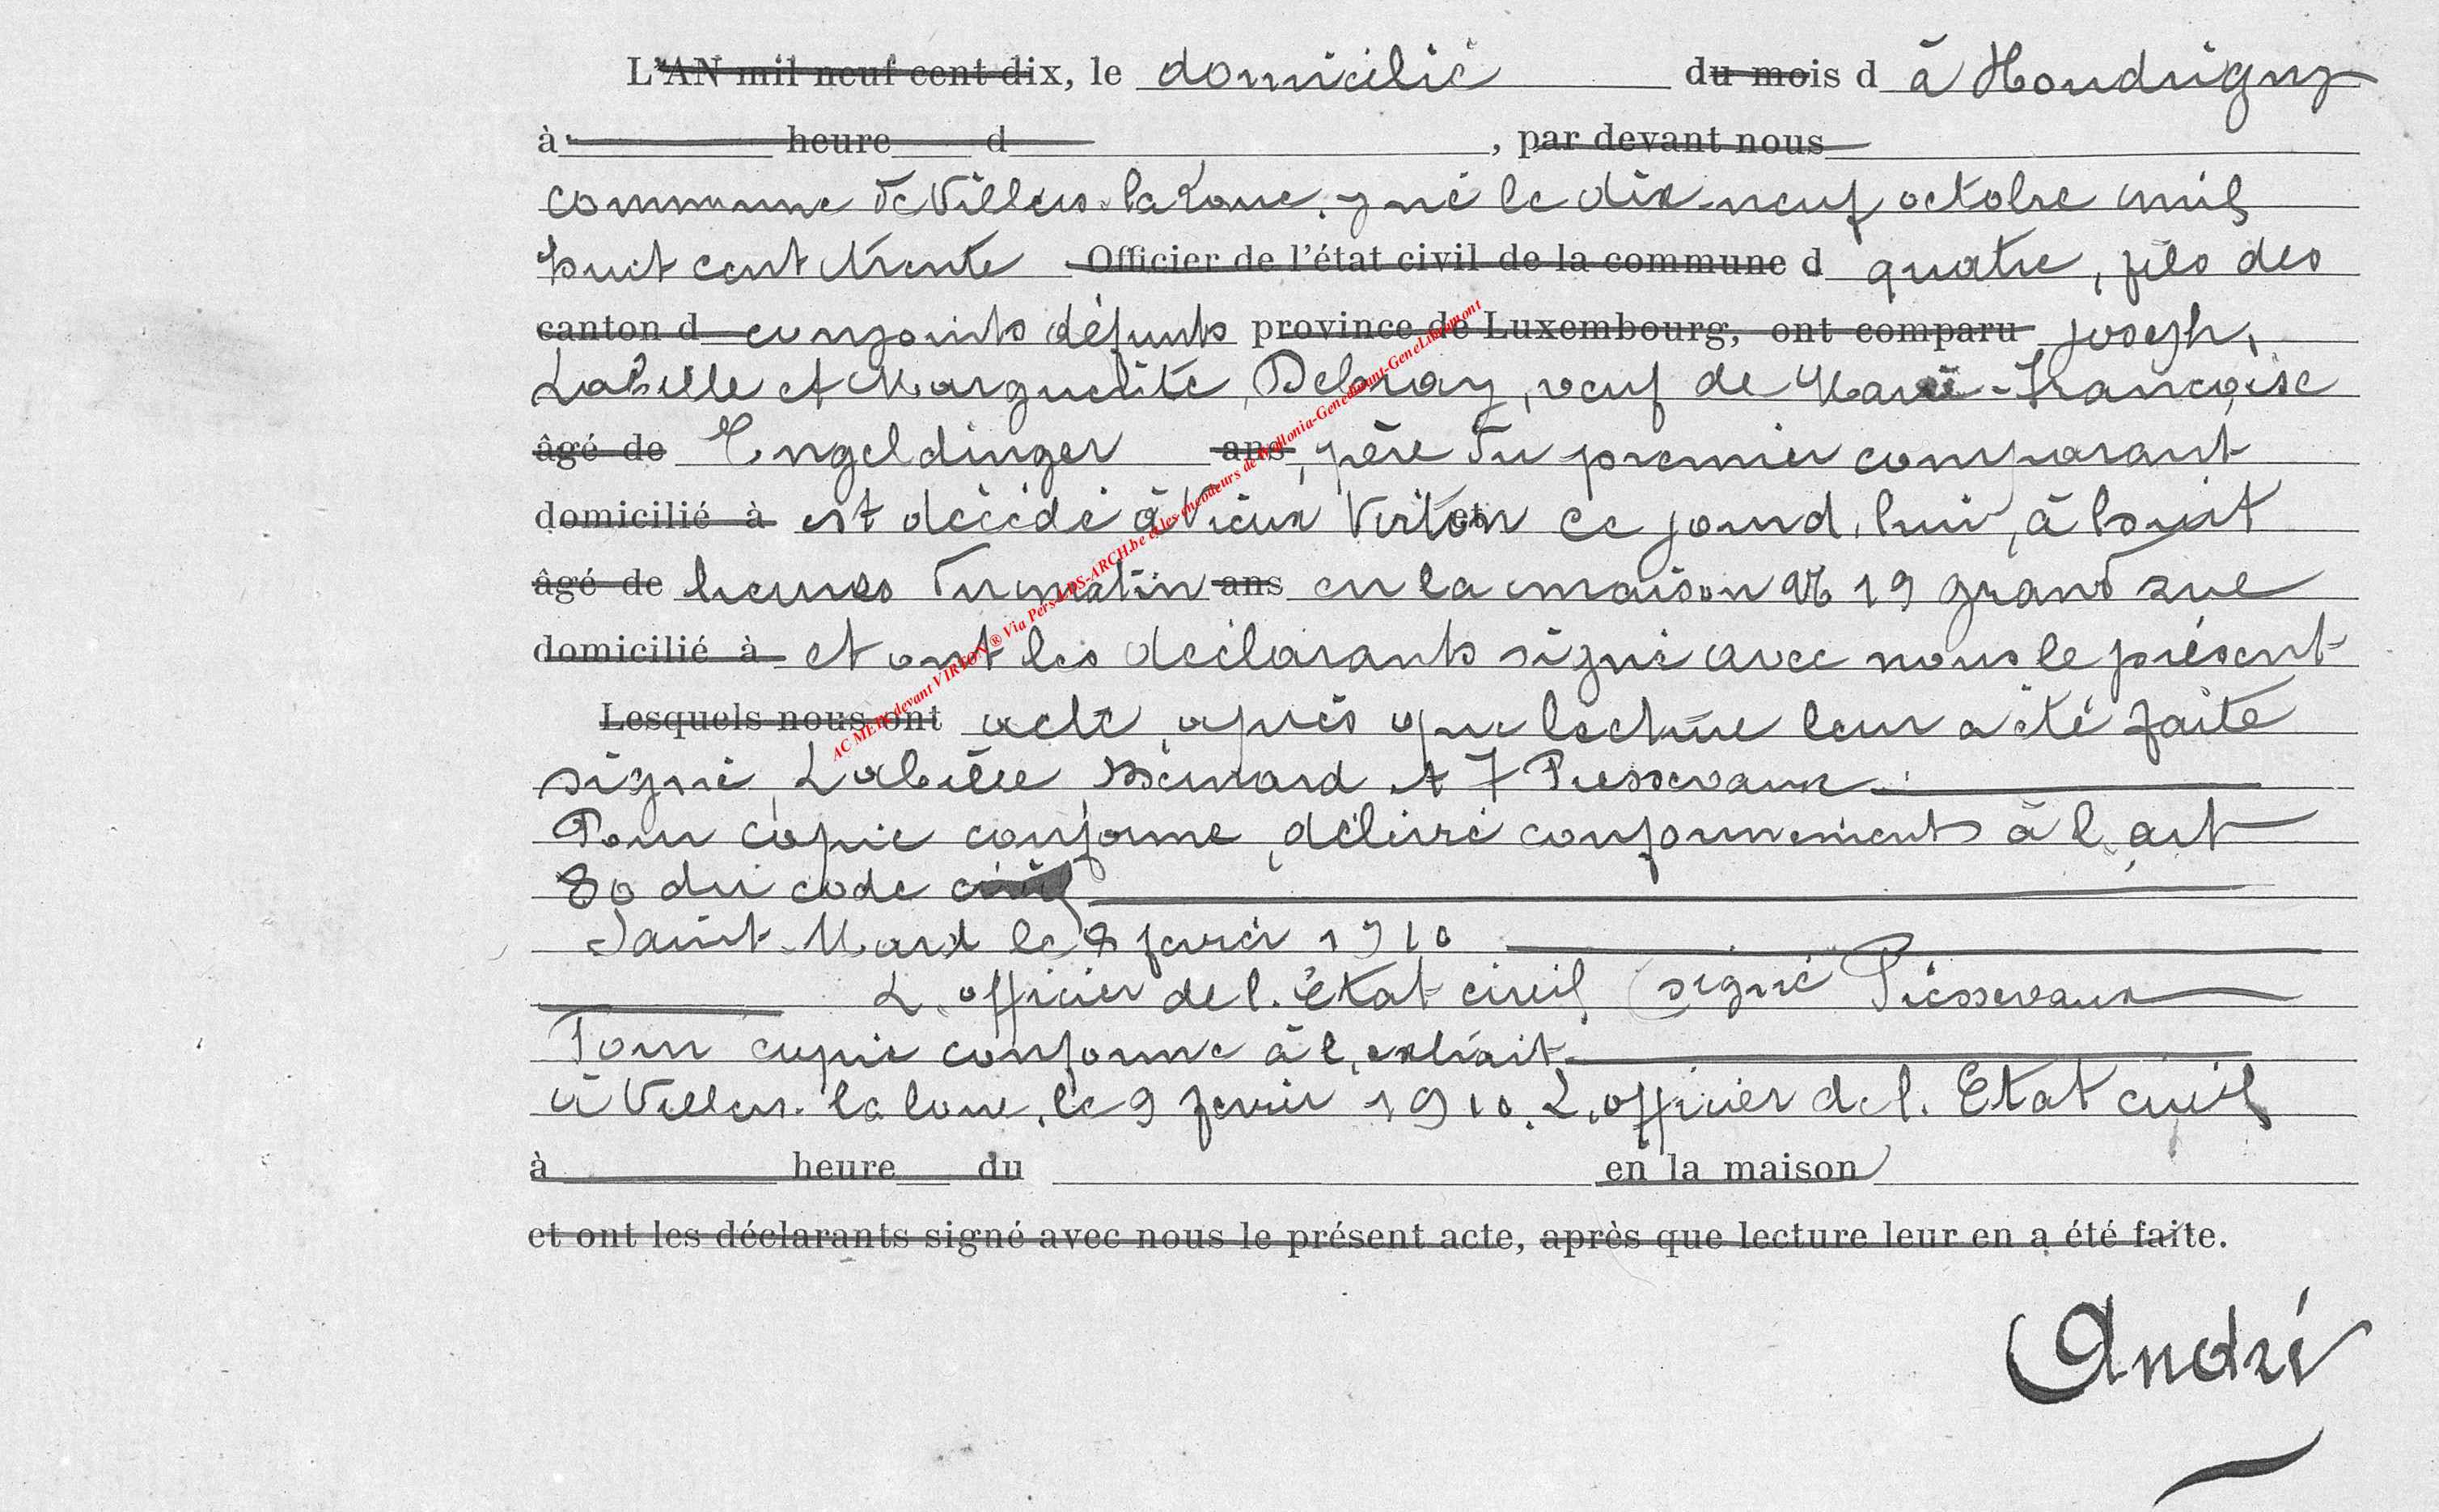 L'AN mil neuf cent dix, le domicilié du mois d à Houdrigny
à heure d , par devant nous
commune de Villers-la Loue, y né le dix-neuf octobre mil
huit cent trente Officier de l'état civil de la commune d quatre, fils des
canton d conjoints défunts province de Luxembourg, ont comparu joseph,
Labille et Marguerite, Delvaux, veuf de Marie-Françoise
âgé de Engeldinger ans, père du premier comparant
domicilié à est décédé à Vieux Virton ce jourd'hui, à huit
âgé de heures du matin ans en la maison No 19 grand rue
domicilié à et ont les déclarants signé avec nous le présent
Lesquels nous ont acte, après que lecture leur a été faite
signé, Labille, Bernard et Piessevaux
Pour copie conforme, délivré conformément à l'art
80 du code civil
Saint-Mard le 8 fevrier 1910
L'officier de l'État civil (signé Piessevaux
Pour copie conforme à l'extrait
à Villers-la loue, le 9 fevrier 1910. L'officier de l'Etat civil
à heure du en la maison
et ont les déclarants signé avec nous le présent acte, après que lecture leur en a été faite.
André
AC MEIX devant VIRTON® Via Pers-LDS-ARCH.be et les encodeurs de Wallonia-Genedinant-GeneLibramont